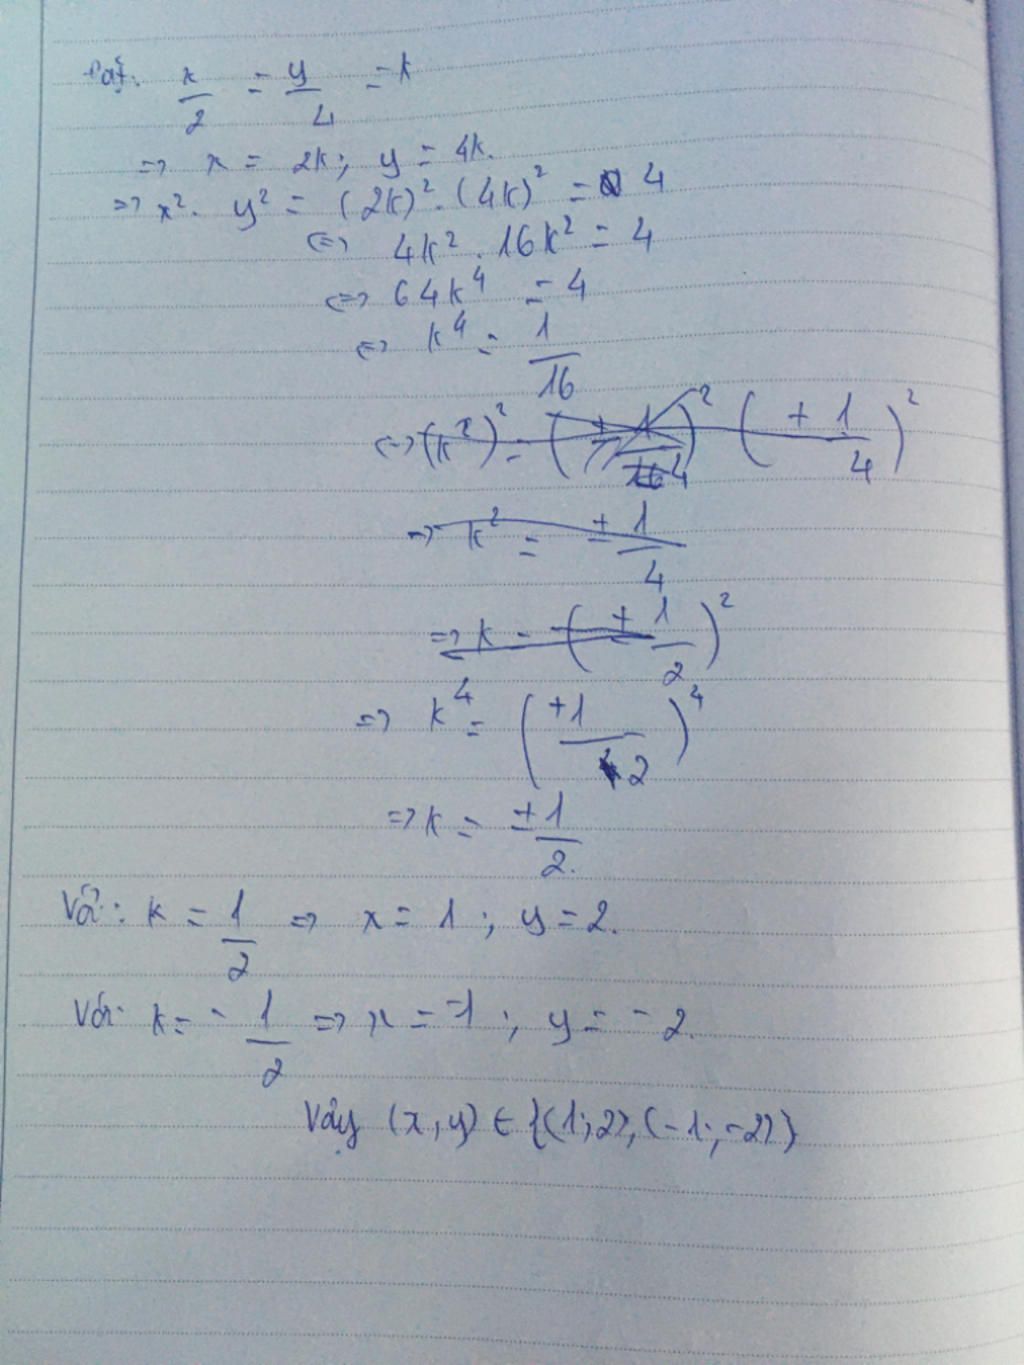 Đặt: x/2 = y/4 = k
=> x = 2k; y = 4k.
=> x². y² = (2k)². (4k)² = 4
<=> 4k². 16k² = 4
<=> 64k⁴ = 4
<=> k⁴ = 1/16
<=> (k²)² = (± 1/4)² (± 1/4)²
=> k² = ± 1/4
=> k = (± 1/2)²
=> k⁴ = (±1/2)⁴
=> k = ±1/2.
Với: k = 1/2 => x = 1 ; y = 2.
Với: k = - 1/2 => x = -1 ; y = - 2.
Vậy (x, y) ∈ {(1; 2), (-1; -2)}